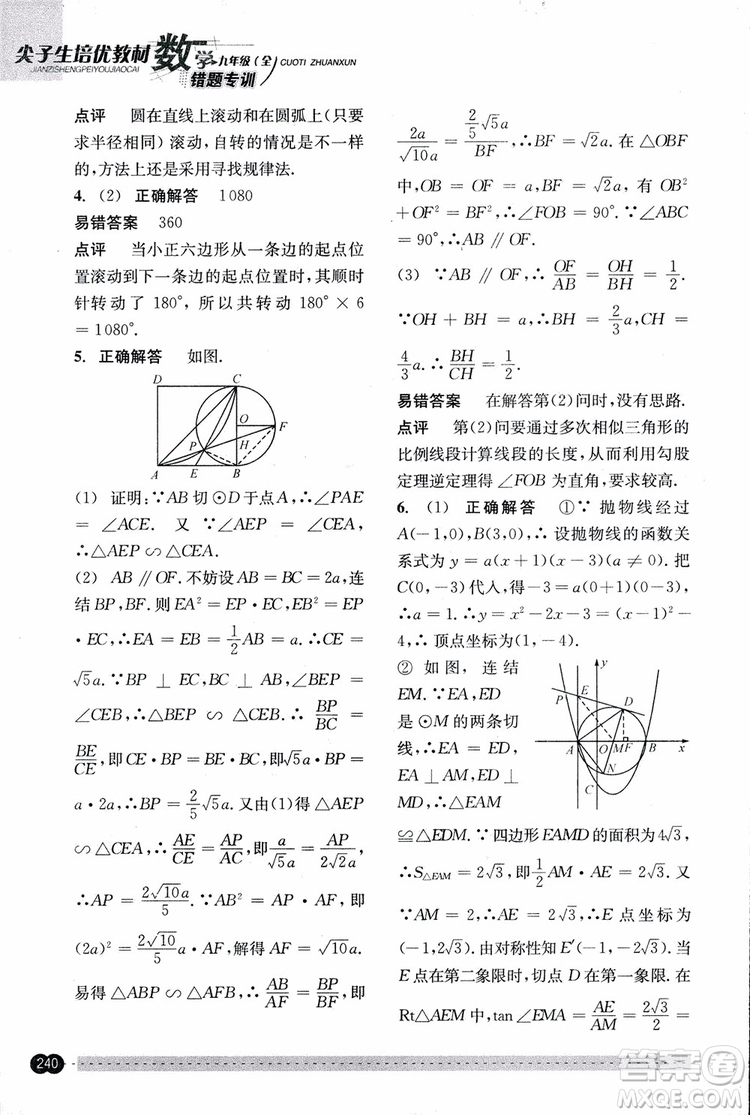 尖子生培优教材
JIANZISHENGPEIYOUJIAOCAI
数学九年级(全)
CUOTI ZHUANXUN
错题专训
点评 圆在直线上滚动和在圆弧上(只要
求半径相同)滚动,自转的情况是不一样
的,方法上还是采用寻找规律法.
4. (2) 正确解答 1080
易错答案 360
点评 当小正六边形从一条边的起点位
置滚动到下一条边的起点位置时,其顺时
针转动了 180°,所以共转动 180° × 6
= 1080°.
5. 正确解答 如图.
D C
O F
P H
A E B
(1) 证明:∵AB 切 ⊙D 于点A,∴∠PAE
= ∠ACE. 又 ∵∠AEP = ∠CEA,
∴△AEP ∽ △CEA.
(2) AB ∥ OF. 不妨设 AB = BC = 2a,连
结 BP,BF. 则 EA² = EP · EC,∴EB² = EP
· EC,∴EA = EB = 1/2 AB = a,∴CE =
√5 a. ∵BP ⊥ EC,BC ⊥ AB,∴∠BEP
= ∠CEB,∴△BEP ∽ △CEB. ∴ BP/BC =
BE/CE,即 CE · BP = BC · BE,即√5 a · BP =
a · 2a,∴BP = 2/5 √5 a. 又由(1)得 △AEP
∽ △CEA,∴ AE/CE = AP/AC,即 a/(√5 a) = AP/(2√2 a).
∴AP = 2√10 a/5. ∵AB² = AP · AF,即
(2a)² = 2√10/5 a · AF,解得 AF = √10 a.
易得 △ABP ∽ △AFB,∴ AB/AF = BP/BF,即
2a/(√10 a) = (2/5 √5 a)/BF,∴BF = √2 a. 在 △OBF
中,OB = OF = a,BF = √2 a,有 OB²
+ OF² = BF²,∴∠FOB = 90°. ∵∠ABC
= 90°,∴AB ∥ OF.
(3) ∵AB ∥ OF,∴ OF/AB = OH/BH = 1/2.
∵OH + BH = a,∴BH = 2/3 a,CH =
4/3 a. ∴ BH/CH = 1/2.
易错答案 在解答第(2)问时,没有思路.
点评 第(2)问要通过多次相似三角形的
比例线段计算线段的长度,从而利用勾股
定理逆定理得∠FOB 为直角,要求较高.
6. (1) 正确解答 ①∵ 抛物线经过
A(-1,0),B(3,0),∴ 设抛物线的函数关
系式为 y = a(x+1)(x-3)(a ≠ 0). 把
C(0,-3)代入,得 -3 = a(0+1)(0-3),
∴a = 1. ∴y = x²-2x-3 = (x-1)²-
4,∴顶点坐标为(1,-4).
② 如图,连结
EM. ∵EA,ED
是 ⊙M 的两条切
线,∴EA = ED,
EA ⊥ AM,ED ⊥
MD,∴△EAM
y
P E
D
A O M F B x
N
C
≌ △EDM. ∵ 四边形 EAMD 的面积为4√3,
∴S△EAM = 2√3,即 1/2 AM · AE = 2√3. 又
∵AM = 2,∴AE = 2√3,∴E 点坐标为
(-1,2√3). 由对称性知 E′(-1,-2√3). 当
E 点在第二象限时,切点 D 在第一象限. 在
Rt△AEM 中,tan∠EMA = AE/AM = 2√3/2 =
240
答案圈
MXQE.COM